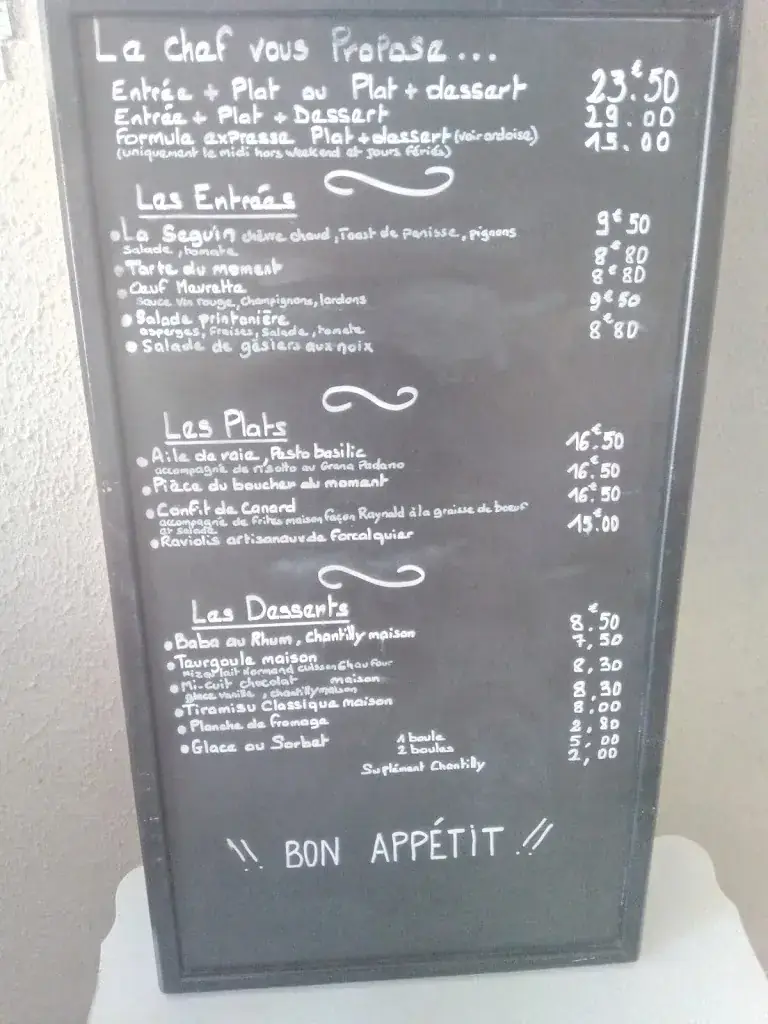 Le chef vous Propose...
Entrée + Plat ou Plat + dessert 23€.50
Entrée + Plat + Dessert 29.00
Formule expresse Plat + dessert (voir ardoise) 15.00
(uniquement le midi hors weekend et jours fériés)
Les Entrées
La Seguin chèvre chaud, Toast de panisse, pignons 9€50
Salade, tomate
Tarte du moment 8€80
Oeuf Meurette 8€80
Sauce vin rouge, Champignons, lardons
Salade printanière 9€50
asperges, fraises, Salade, tomate
Salade de gésiers aux noix 8€80
Les Plats
Aile de raie, Pesto basilic 16€.50
accompagné de risotto au Grana Padano
Pièce du boucher du moment 16€.50
Confit de Canard 16€.50
accompagné de frites maison façon Raynald à la graisse de boeuf
et Salade
Raviolis artisanaux de Forcalquier 15€.00
Les Desserts
Baba au Rhum, Chantilly maison 8€.50
Teurgoule maison 7,50
Riz au lait Normand cuisson Chau four
Mi-Cuit chocolat maison 8,30
glace vanille, chantilly maison
Tiramisu Classique maison 8,30
Planche de fromage 8.00
Glace ou Sorbet 1 boule 2,80
2 boules 5,00
Suplément Chantilly 2,00
!! BON APPÉTIT !!